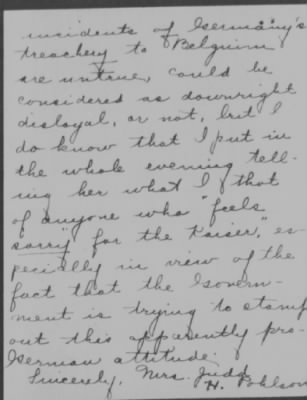 incidents of Germany's
treachery to Belgium
are untrue, could be
considered as downright
disloyal, or not, but I
do know that I put in
the whole evening tell-
ing her what I thot
of anyone who "feels
sorry" for the Kaiser, es-
pecially in view of the
fact that the Govern-
ment is trying to stamp
out this apparently pro-
German attitude.
Sincerely, Mrs. Judd
H. Pohlson